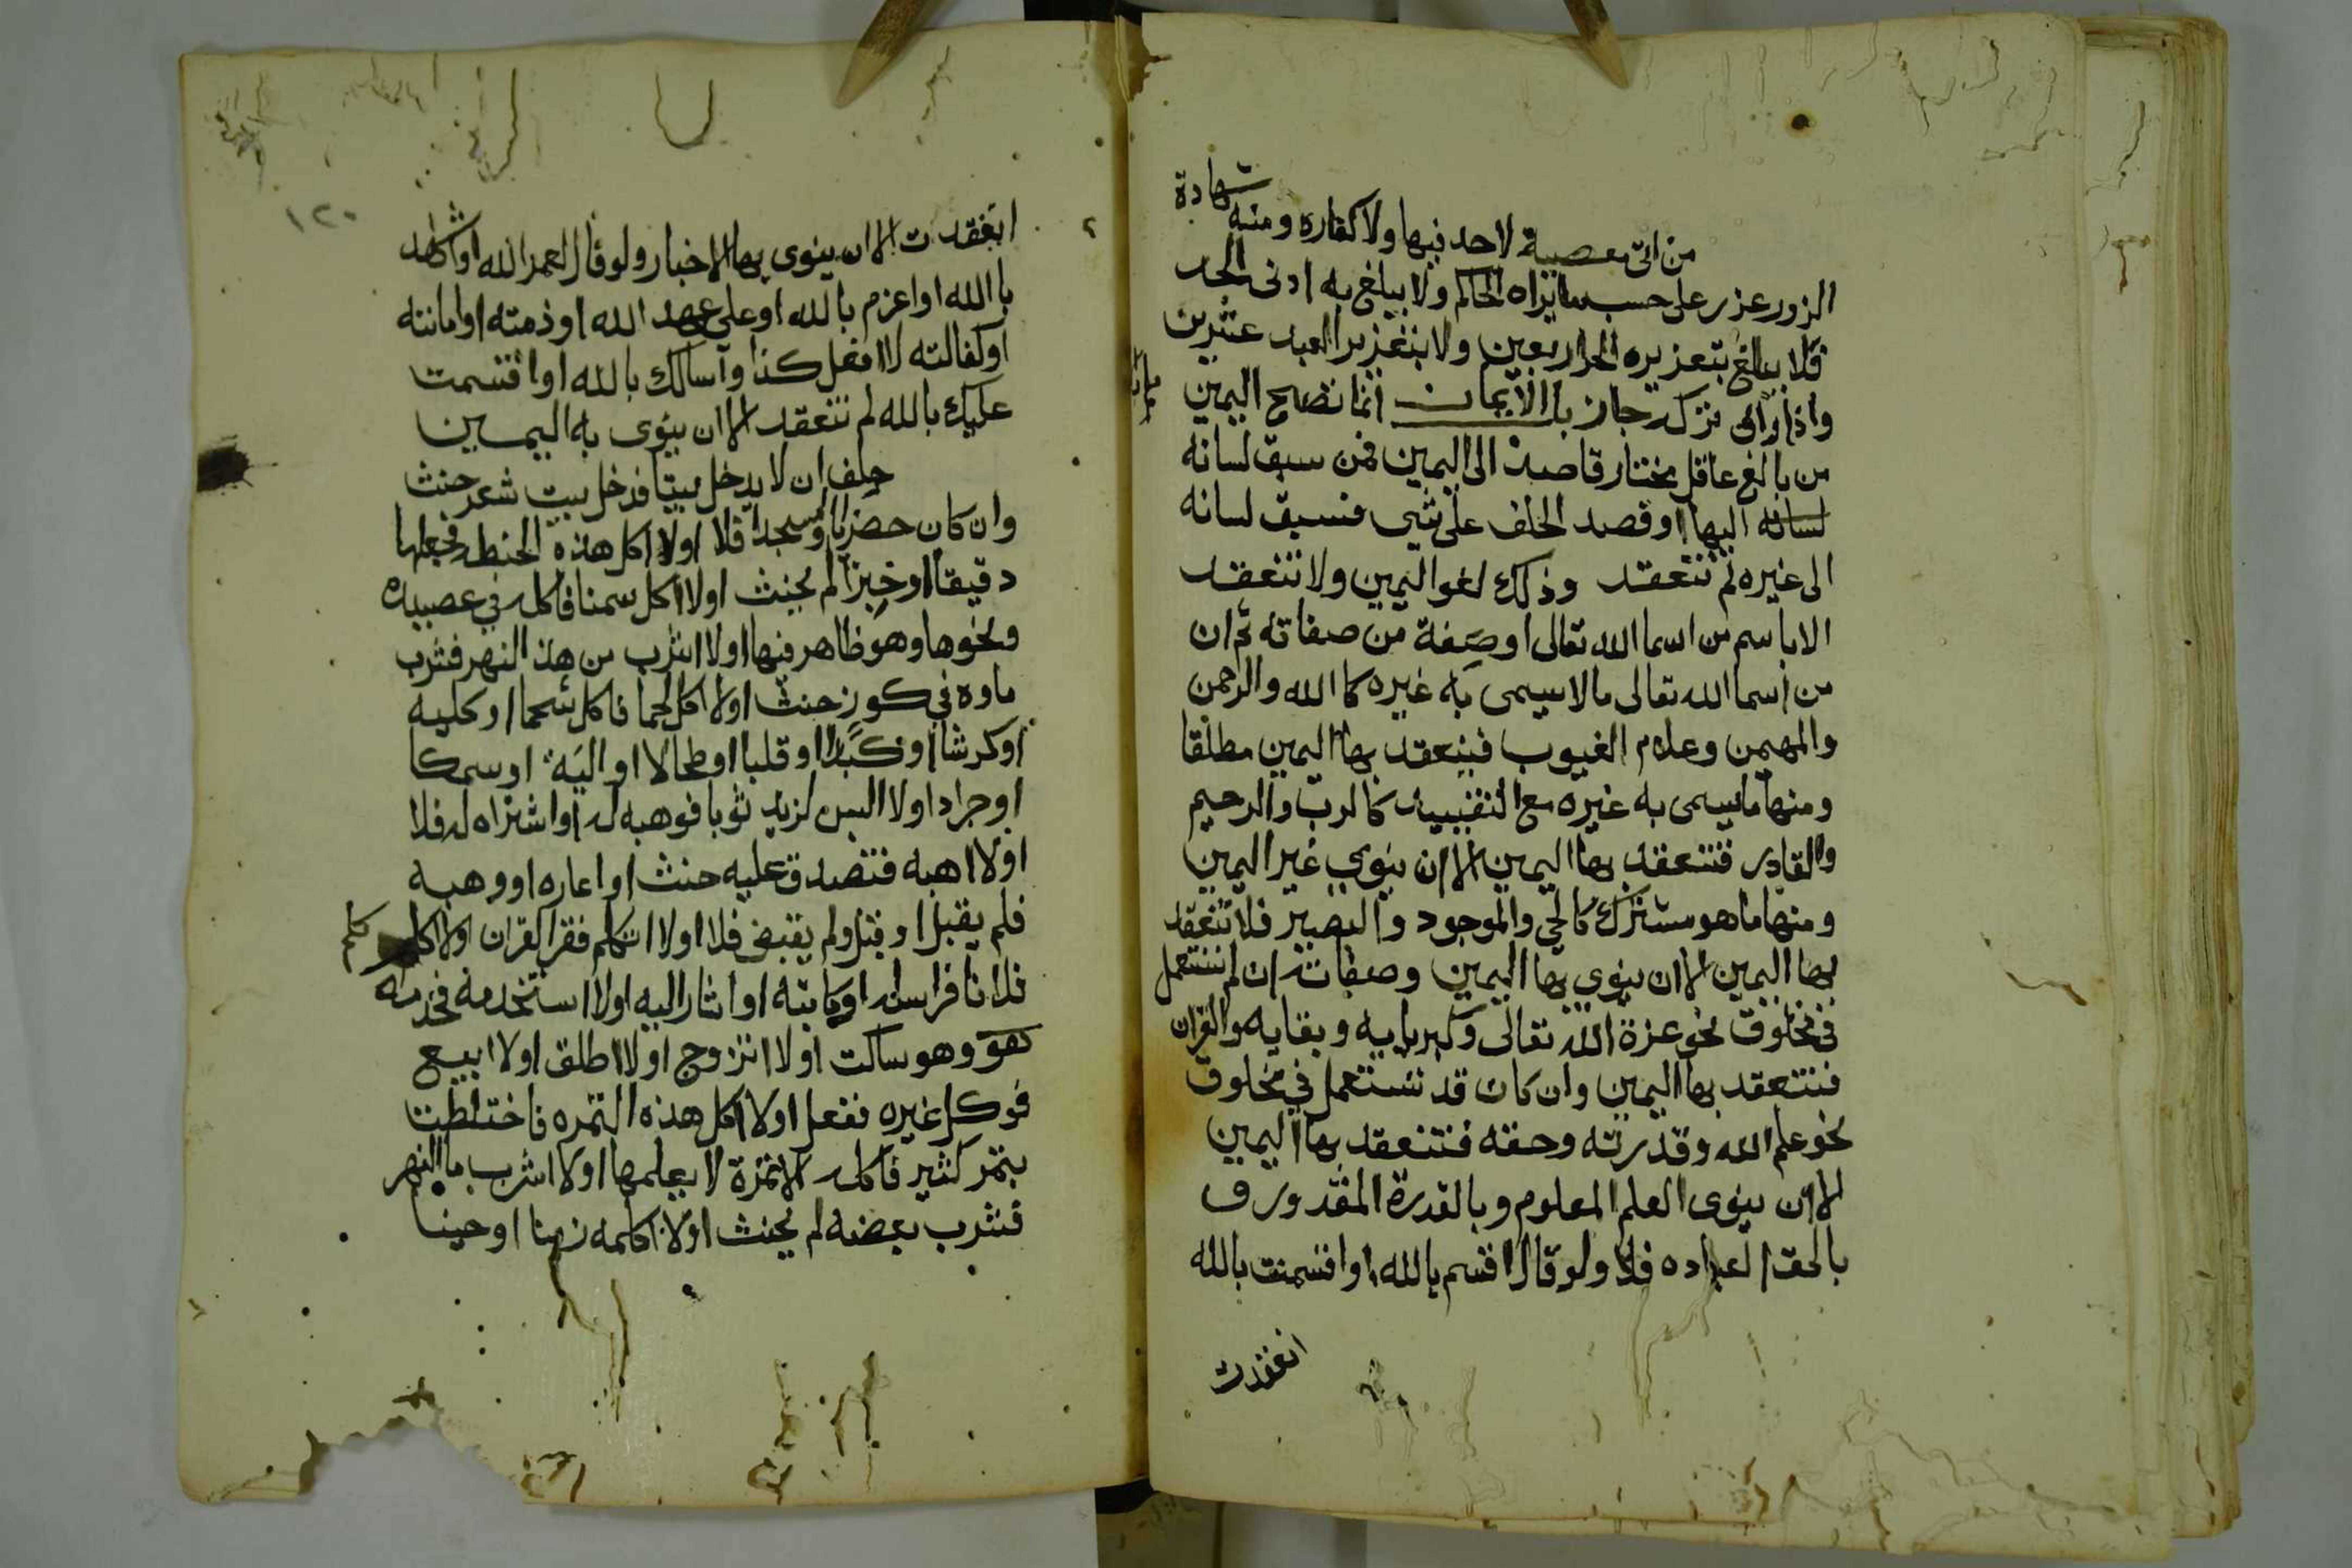 من اتى معصية لا حد فيها ولا كفاره ومنه شهادة
الزور عزر على حسب ما يراه الحاكم ولا يبلغ به ادنى الحد
فلا يبلغ بتعزيره الحر اربعين ولا بتعزير العبد عشرين
واذا راى تركه جاز باب الايمان انما تصح اليمين
من بالغ عاقل مختار قاصد الى اليمين فمن سبق لسانه
لسانه اليها او قصد الحلف على شي فسبق لسانه
الى غيره لم تنعقد وذلك لغو اليمين ولا تنعقد
الا باسم من اسما الله تعالى او صفة من صفاته ثم ان
من اسما الله تعالى ما لا يسمى به غيره كا الله والرحمن
والمهيمن وعلام الغيوب فينعقد بها اليمين مطلقا
ومنها ما يسمى به غيره مع التقييد كالرب والرحيم
والقادر فتنعقد بها اليمين الا ان ينوي غير اليمين
ومنها ما هو مشترك كالحي والموجود والبصير فلا تنعقد
بها اليمين الا ان ينوي بها اليمين وصفاته ان لم تستعمل
في مخلوق نحو عزة الله تعالى وكبريايه وبقايه والقران
فتنعقد بها اليمين وان كان قد تستعمل في مخلوق
نحو علم الله وقدرته وحقه فتنعقد بها اليمين
الا ان ينوى العلم المعلوم وبالقدرة المقدور ف
بالحق العباده فلا ولو قال اقسم بالله او اقسمت بالله
انعقدت
١٢٠
انعقدت الا ان ينوى بها الاخبار ولو قال لعمر الله او اشهد
با الله او اعزم بالله او علي عهد الله او ذمته او امانته
او كفالته لا افعل كذا وآسالك بالله او اقسمت
عليك بالله لم تنعقد الا ان ينوى به اليمين
حلف ان لا يدخل بيتا فدخل بيت شعر حنث
وان كان حضريا او مسجدا فلا اولا اكل هذه الحنطه فجعلها
دقيقا او خبزا لم يحنث اولا اكل سمنا فاكله في عصيده
ونحوها وهو ظاهر فيها اولا اشرب من هذ النهر فشرب
ماوه في كوز حنث اولا اكل لحما فاكل شحما او كليه
او كرشا او كبدا او قلبا او طحالا او الية او سمكا
او جراد اولا البس لزيد ثوبا فوهبه له او اشتراه له فلا
اولا اهبه فتصدق عليه حنث او اعاره او وهبه
فلم يقبل او قبل ولم يقبض فلا اولا اتكلم فقرا القران اولا اكلم
فلانا فراسله او كاتبه او اشار اليه اولا استخدمه فخدمه
وهو ساكت اولا اتزوج اولا اطلق اولا ابيع
فوكل غيره ففعل اولا اكل هذه التمره فاختلطت
بتمر كثير فاكله الا تمرة لا يعلمها اولا اشرب ما النهر
فشرب بعضه لم يحنث اولا اكلمه زمنا او حينا